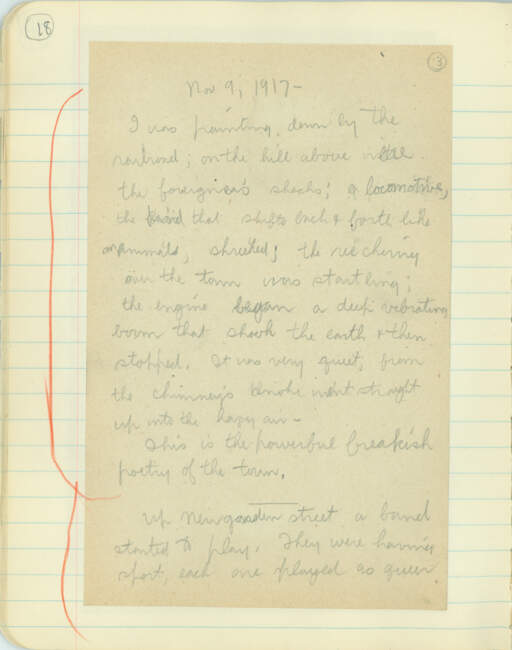 18
3
Nov 9, 1917 –
I was painting, down by the
railroad; on the hill above were
the foreigners shacks; a locomotive,
the kind that shifts back & forth like
mammals, shrieked; the
over the town was startling;
the engine began a deep vibrating
boom that shook the earth & then
stopped. It was very quiet, from
the chimneys smoke went straight
up into the hazy air –
This is the powerful freakish
poetry of the town.
Up Newgarden street a band
started to play. They were having
sport, each one played as queer